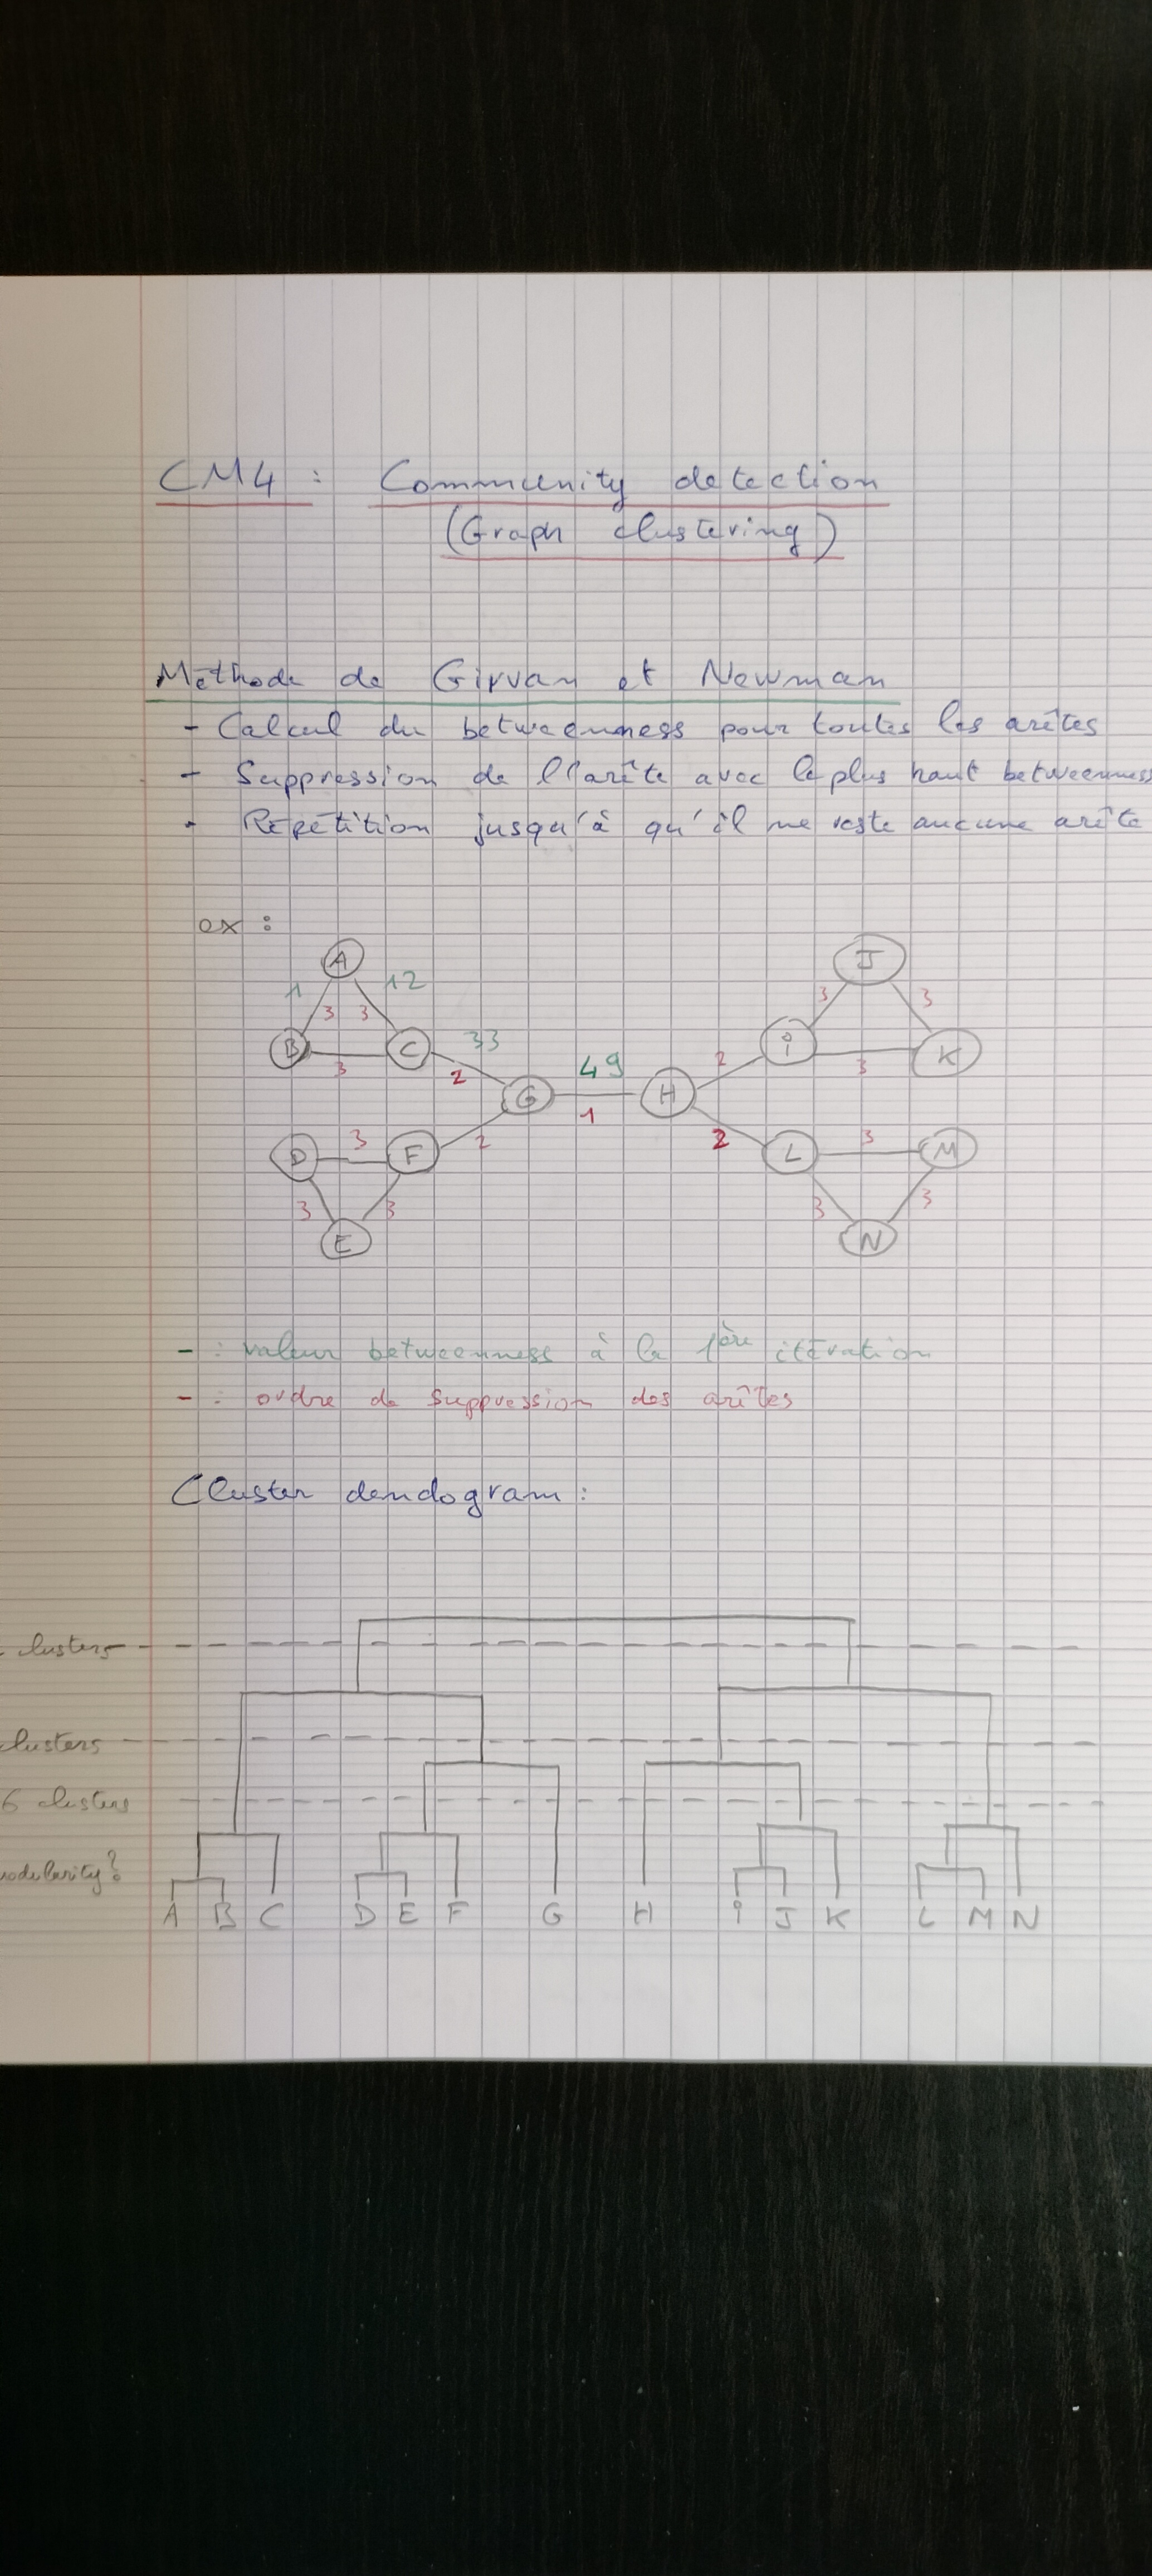 CM4 : Community detection
(Graph clustering)
Méthode de Girvan et Newman
- Calcul du betweenness pour toutes les arêtes
- Suppression de l'arête avec le plus haut betweenness
- Répétition jusqu'à qu'il ne reste aucune arête
ex :
A J
1 12 3 3
3 3
B C 33 i K
3 2 49 2 3
G H
1
D 3 F 2 2 L 3 M
3 3 3 3
E N
- : valeur betweenness à la 1ère itération
- : ordre de suppression des arêtes
Cluster dendogram :
clusters
clusters
6 clusters
modularity?
A B C D E F G H i J K L M N